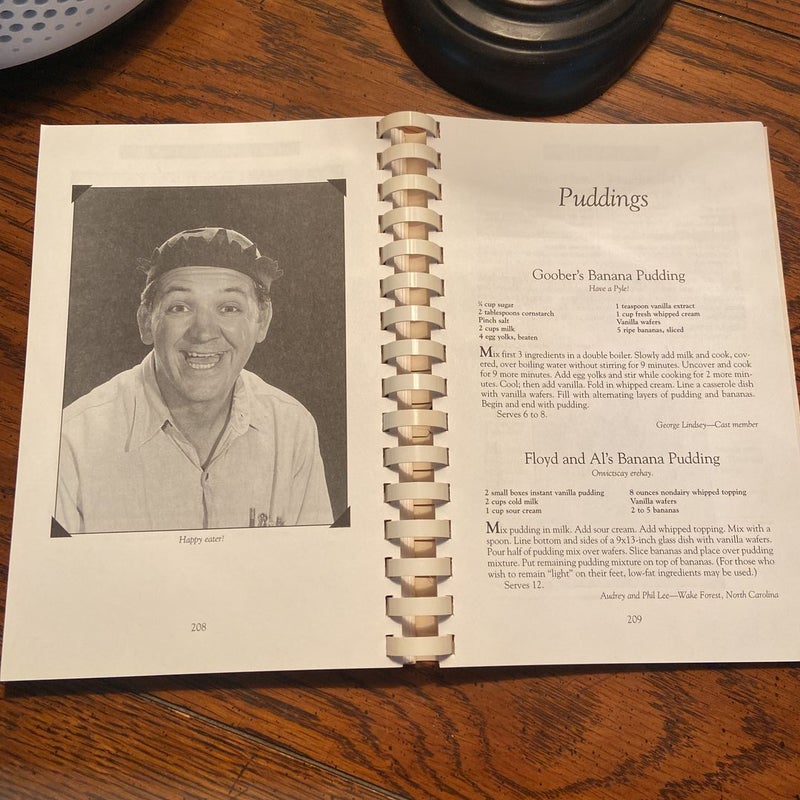 Happy eater!
208
Puddings
Goober's Banana Pudding
Have a Pyle!
¾ cup sugar
2 tablespoons cornstarch
Pinch salt
2 cups milk
4 egg yolks, beaten
1 teaspoon vanilla extract
1 cup fresh whipped cream
Vanilla wafers
5 ripe bananas, sliced
Mix first 3 ingredients in a double boiler. Slowly add milk and cook, cov-
ered, over boiling water without stirring for 9 minutes. Uncover and cook
for 9 more minutes. Add egg yolks and stir while cooking for 2 more min-
utes. Cool; then add vanilla. Fold in whipped cream. Line a casserole dish
with vanilla wafers. Fill with alternating layers of pudding and bananas.
Begin and end with pudding.
Serves 6 to 8.
George Lindsey—Cast member
Floyd and Al's Banana Pudding
Onwictscay erehay.
2 small boxes instant vanilla pudding
2 cups cold milk
1 cup sour cream
8 ounces nondairy whipped topping
Vanilla wafers
2 to 5 bananas
Mix pudding in milk. Add sour cream. Add whipped topping. Mix with a
spoon. Line bottom and sides of a 9x13-inch glass dish with vanilla wafers.
Pour half of pudding mix over wafers. Slice bananas and place over pudding
mixture. Put remaining pudding mixture on top of bananas. (For those who
wish to remain "light" on their feet, low-fat ingredients may be used.)
Serves 12.
Audrey and Phil Lee—Wake Forest, North Carolina
209